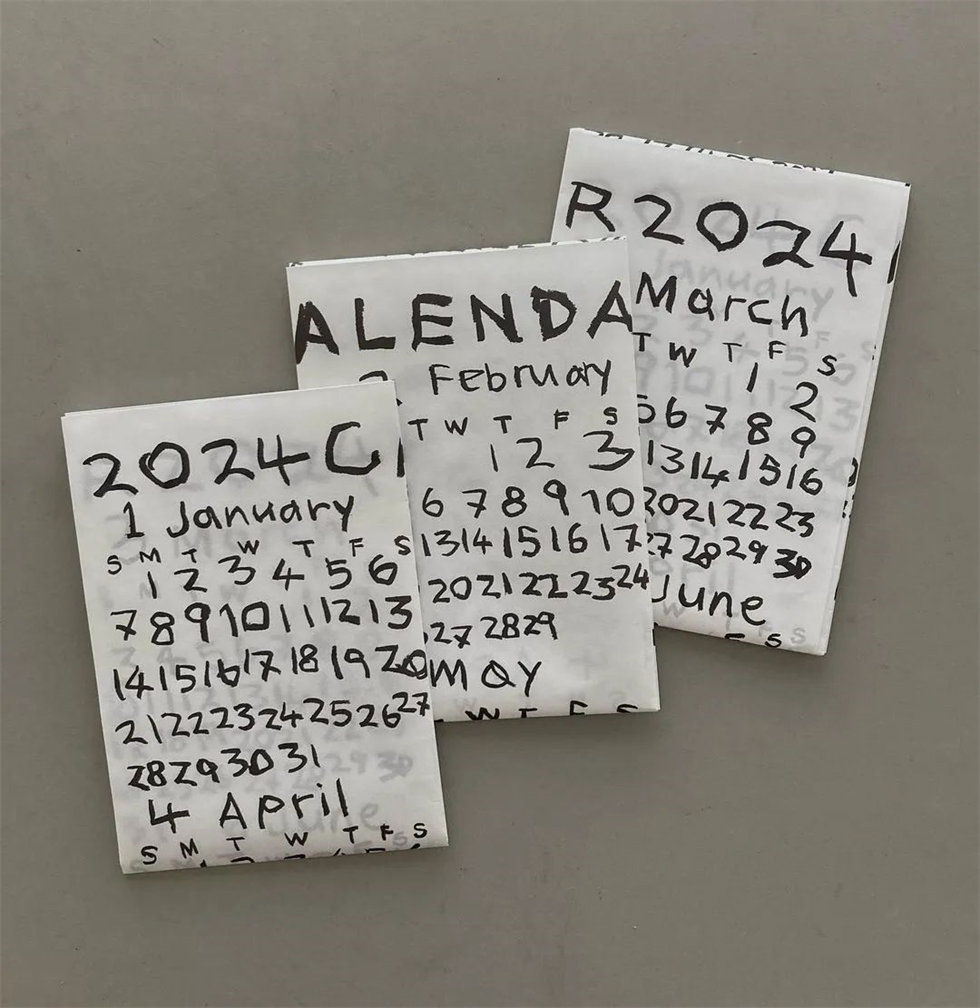 2024 C
1 January
S M T W T F S
1 2 3 4 5 6
7 8 9 10 11 12 13
14 15 16 17 18 19 20
21 22 23 24 25 26 27
28 29 30 31
4 April
S M T W T F S
ALENDA
February
T W T F S
1 2 3
6 7 8 9 10
13 14 15 16 17
20 21 22 23 24
27 28 29
May
W T F S
R 2024
March
T W T F S
1 2
5 6 7 8 9
13 14 15 16
20 21 22 23
27 28 29 30
June
F S